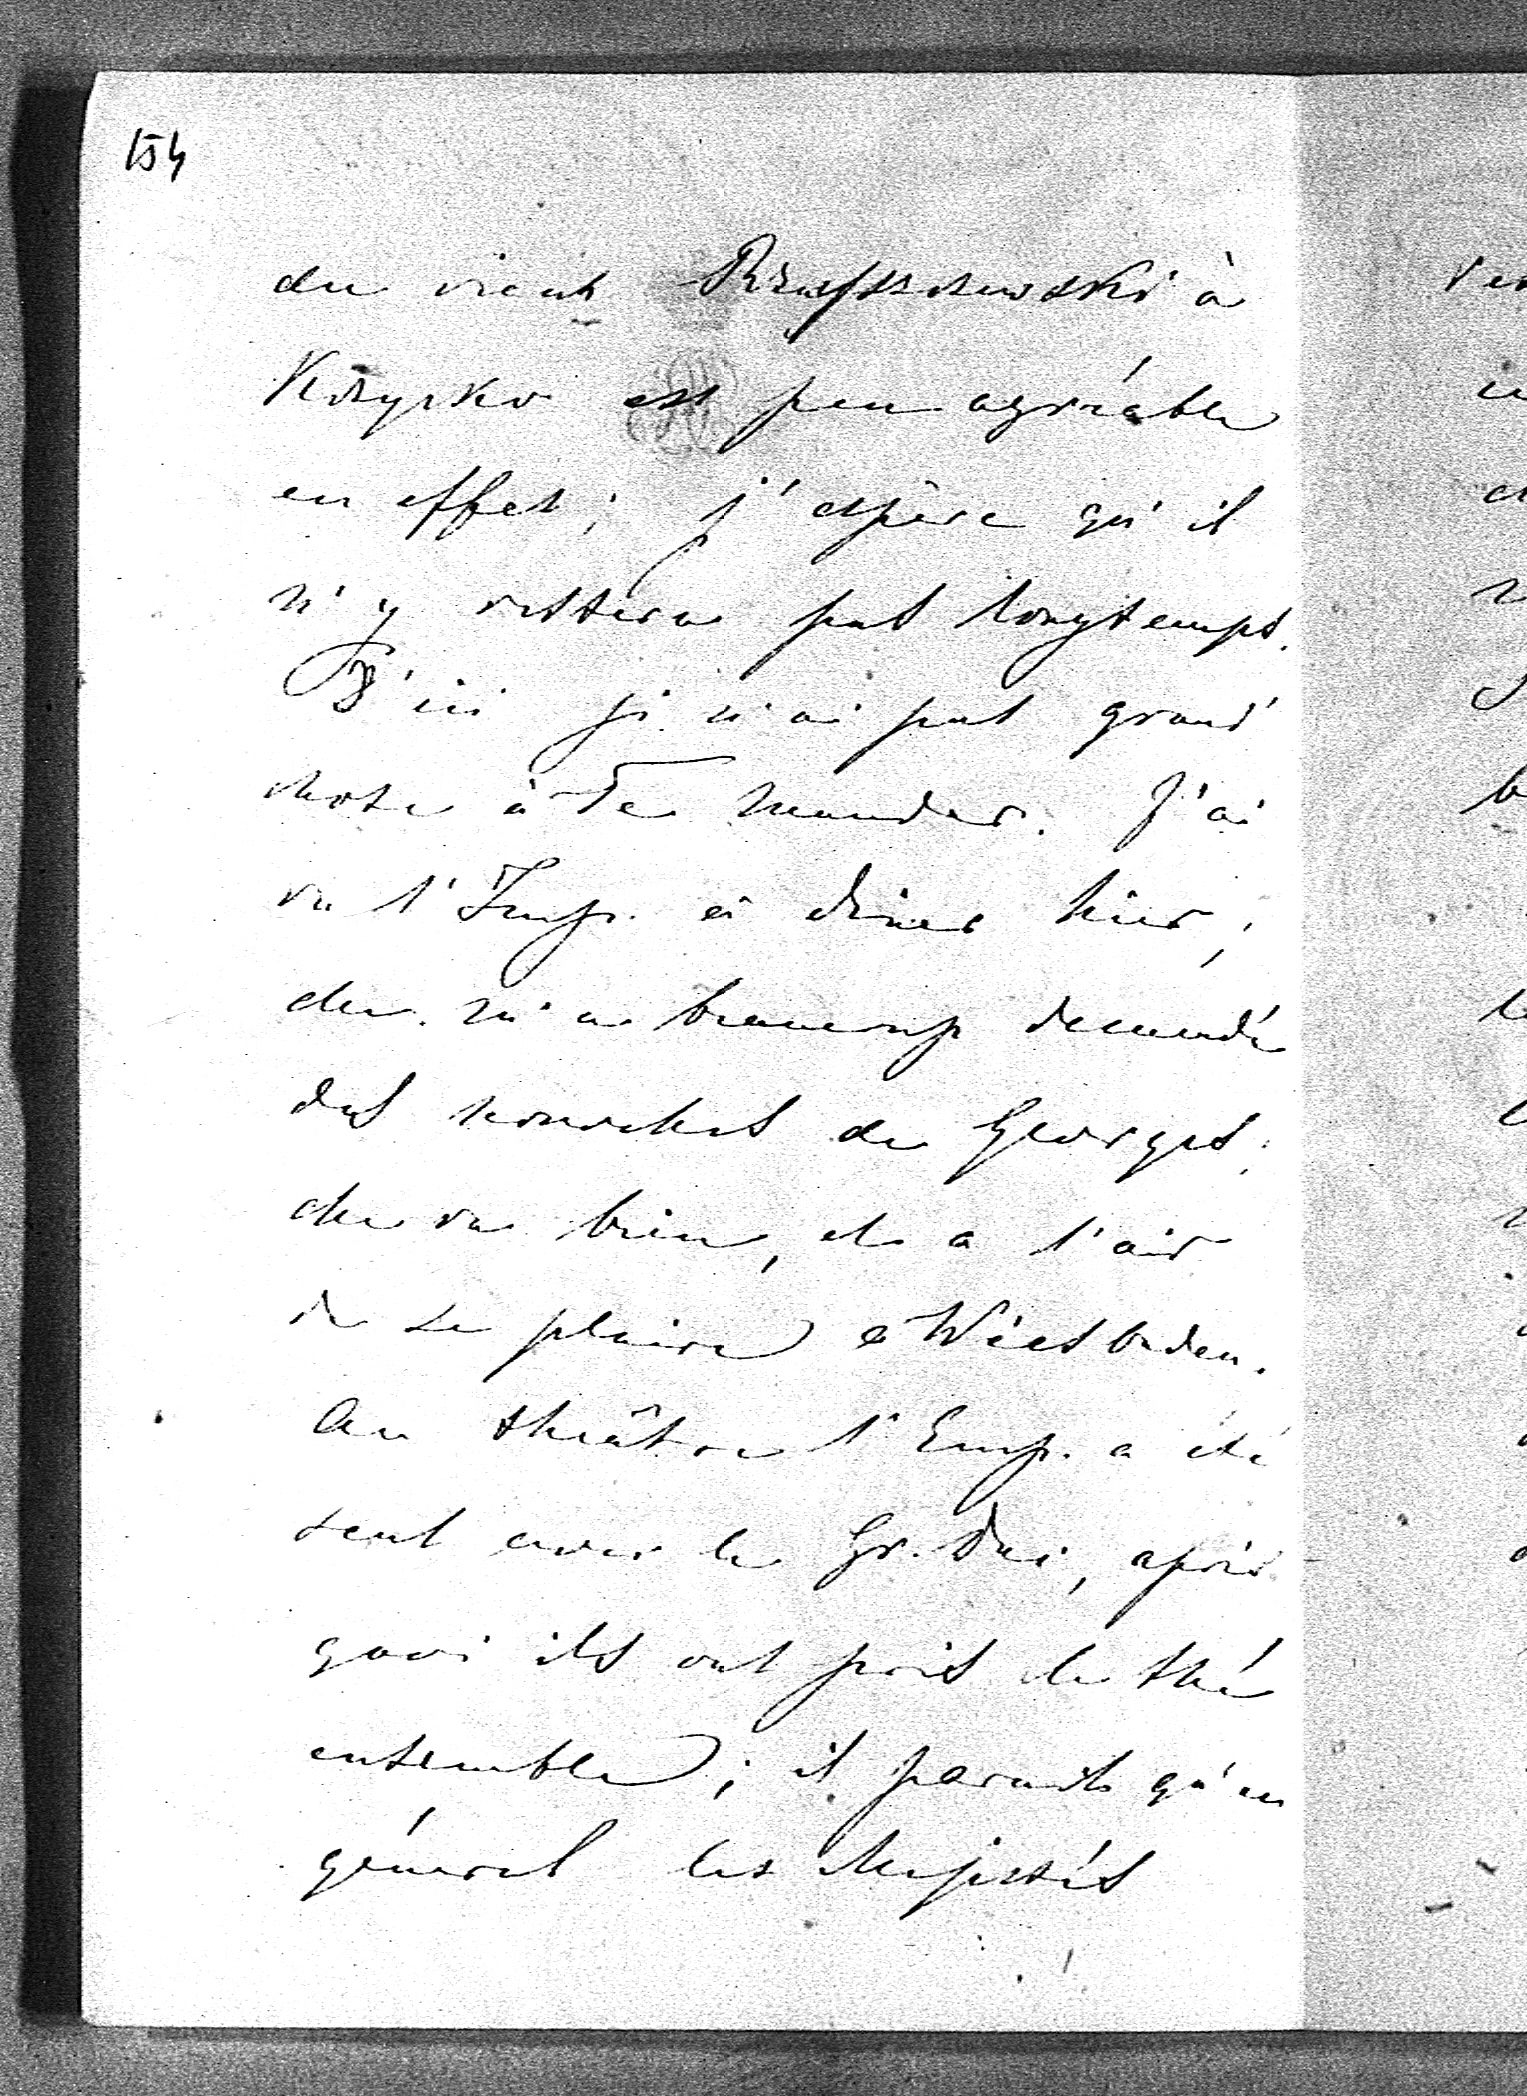 154
du vieux à
est peu agréable
en effet; j'espère qu'il
n'y restera pas longtemps.
D'ici je n'ai pas grand'
chose à Te mander. J'ai
vu l'Imp. à diner hier;
elle m'a beaucoup demandé
des nouvelles de Georges;
elle va bien, et a l'air
de se plaire à Wiesbaden.
Au théâtre l'Emp. a été
seul avec le Gr. Duc, après
quoi ils ont pris le thé
ensemble; il paraît qu'en
général les Majestés